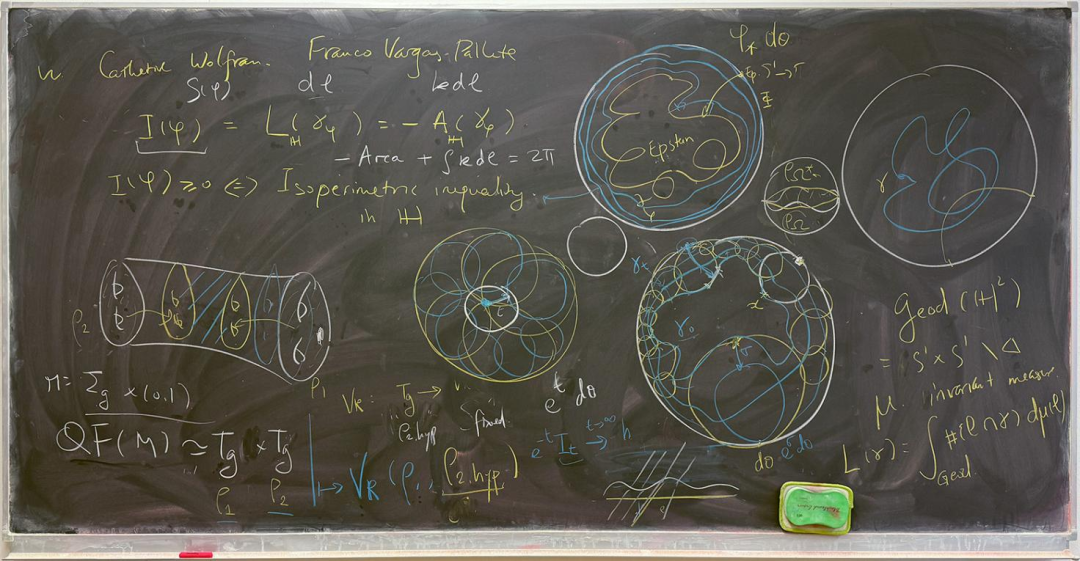 w Catherine Wolfram. Franco Vargas-Pallete
S(φ) dℓ kdℓ
I(φ) = L_ℍ(γ_φ) = - A_ℍ(γ_φ)
- Area + ∫kdℓ = 2π
I(φ) ≥ 0 ⇔ Isoperimetric inequality.
in ℍ
φ_* dθ
Ep. S' →
Epstein
γ
ρ_2
ρ_1
M = Σ_g × (0,1)
QF(M) ≃ T_g × T_g
ρ_1 ρ_2
V_R : T_g →
ρ_2.hyp fixed
↦ V_R (ρ_1, ρ_2.hyp)
e^t dθ
e^{-t} I_t → h
t→∞
γ_* γ_0 x σ
dθ e^t dθ
Geod (ℍ²)
= S' × S' \ △
μ. invariant measure
L(γ) = ∫_{Geod.} #(ℓ∩γ) dμ(ℓ)